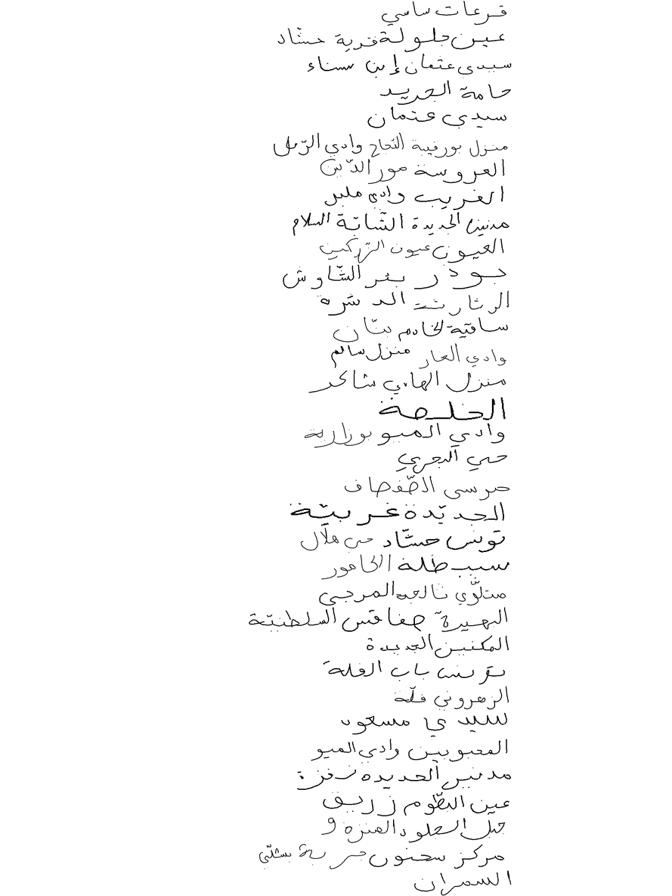 قرعات ساسي
عين جلولة قرية حشاد
سيدي عثمان إبن سيناء
حامة الجريد
سيدي عثمان
منزل بورقيبة النجاح وادي الرّمل
العروسة نور الدّين
الغريب وادي مليز
مدنين الجديدة الشّابّة السلام
العيون عيون التركين
بودر بئر الشّاوش
الدشرة
ساقية الخادم بنّان
وادي الغار منزل سالم
منزل الهادي شاكر
الخليجة
وادي الميو بوزارية
حي البحري
مرسى الصّفصاف
الجديّدة غربيّة
تونس حشّاد حي هلال
سبيطلة الخامور
متلوّي المرجى
البحيرة صفاقس السلطنيّة
المكنين الجديدة
تونس باب القلة
الزهروني قلّة
سيدي مسعود
المحبوبين وادي الميو
مدنين الجديدة نفزة
عين البطّوم زريق
جبل الجلود المنزه 9
مركز سحنون
السمران